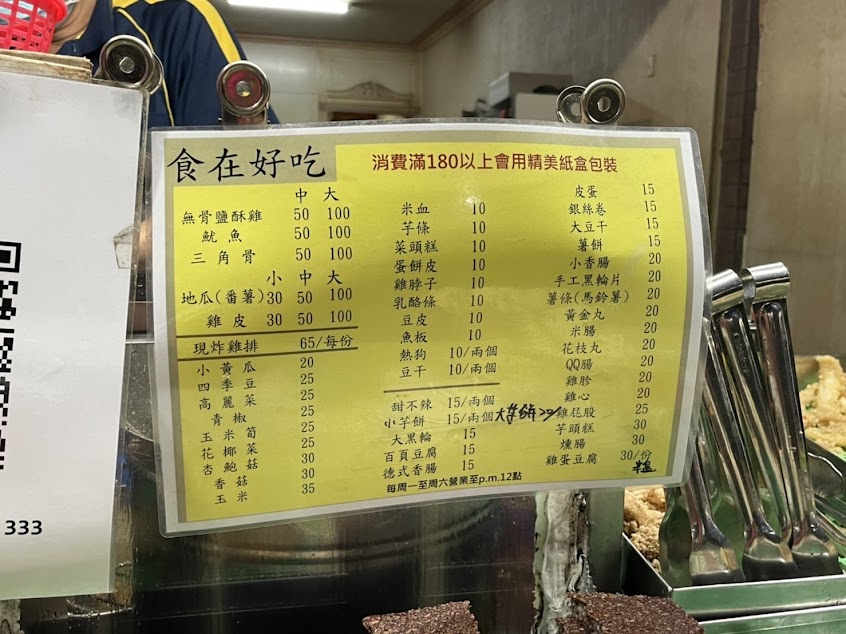 食在好吃
消費滿180以上會用精美紙盒包裝
中 大
無骨鹽酥雞 50 100
魷魚 50 100
三角骨 50 100
小 中 大
地瓜(番薯) 30 50 100
雞皮 30 50 100
現炸雞排 65/每份
小黃瓜 20
四季豆 25
高麗菜 25
青椒 25
玉米筍 25
花椰菜 25
杏鮑菇 30
香菇 30
玉米 35
米血 10
芋條 10
菜頭糕 10
蛋餅皮 10
雞脖子 10
乳酪條 10
豆皮 10
魚板 10
熱狗 10/兩個
豆干 10/兩個
甜不辣 15/兩個
小芋餅 15/兩個
大黑輪 15
百頁豆腐 15
德式香腸 15
每周一至周六營業至p.m.12點
皮蛋 15
銀絲卷 15
大豆干 15
薯餅 15
小香腸 20
手工黑輪片 20
薯條(馬鈴薯) 20
黃金丸 20
米腸 20
花枝丸 20
QQ腸 20
雞胗 20
雞心 20
雞屁股 25
芋頭糕 30
燻腸 30
雞蛋豆腐 30/份
333